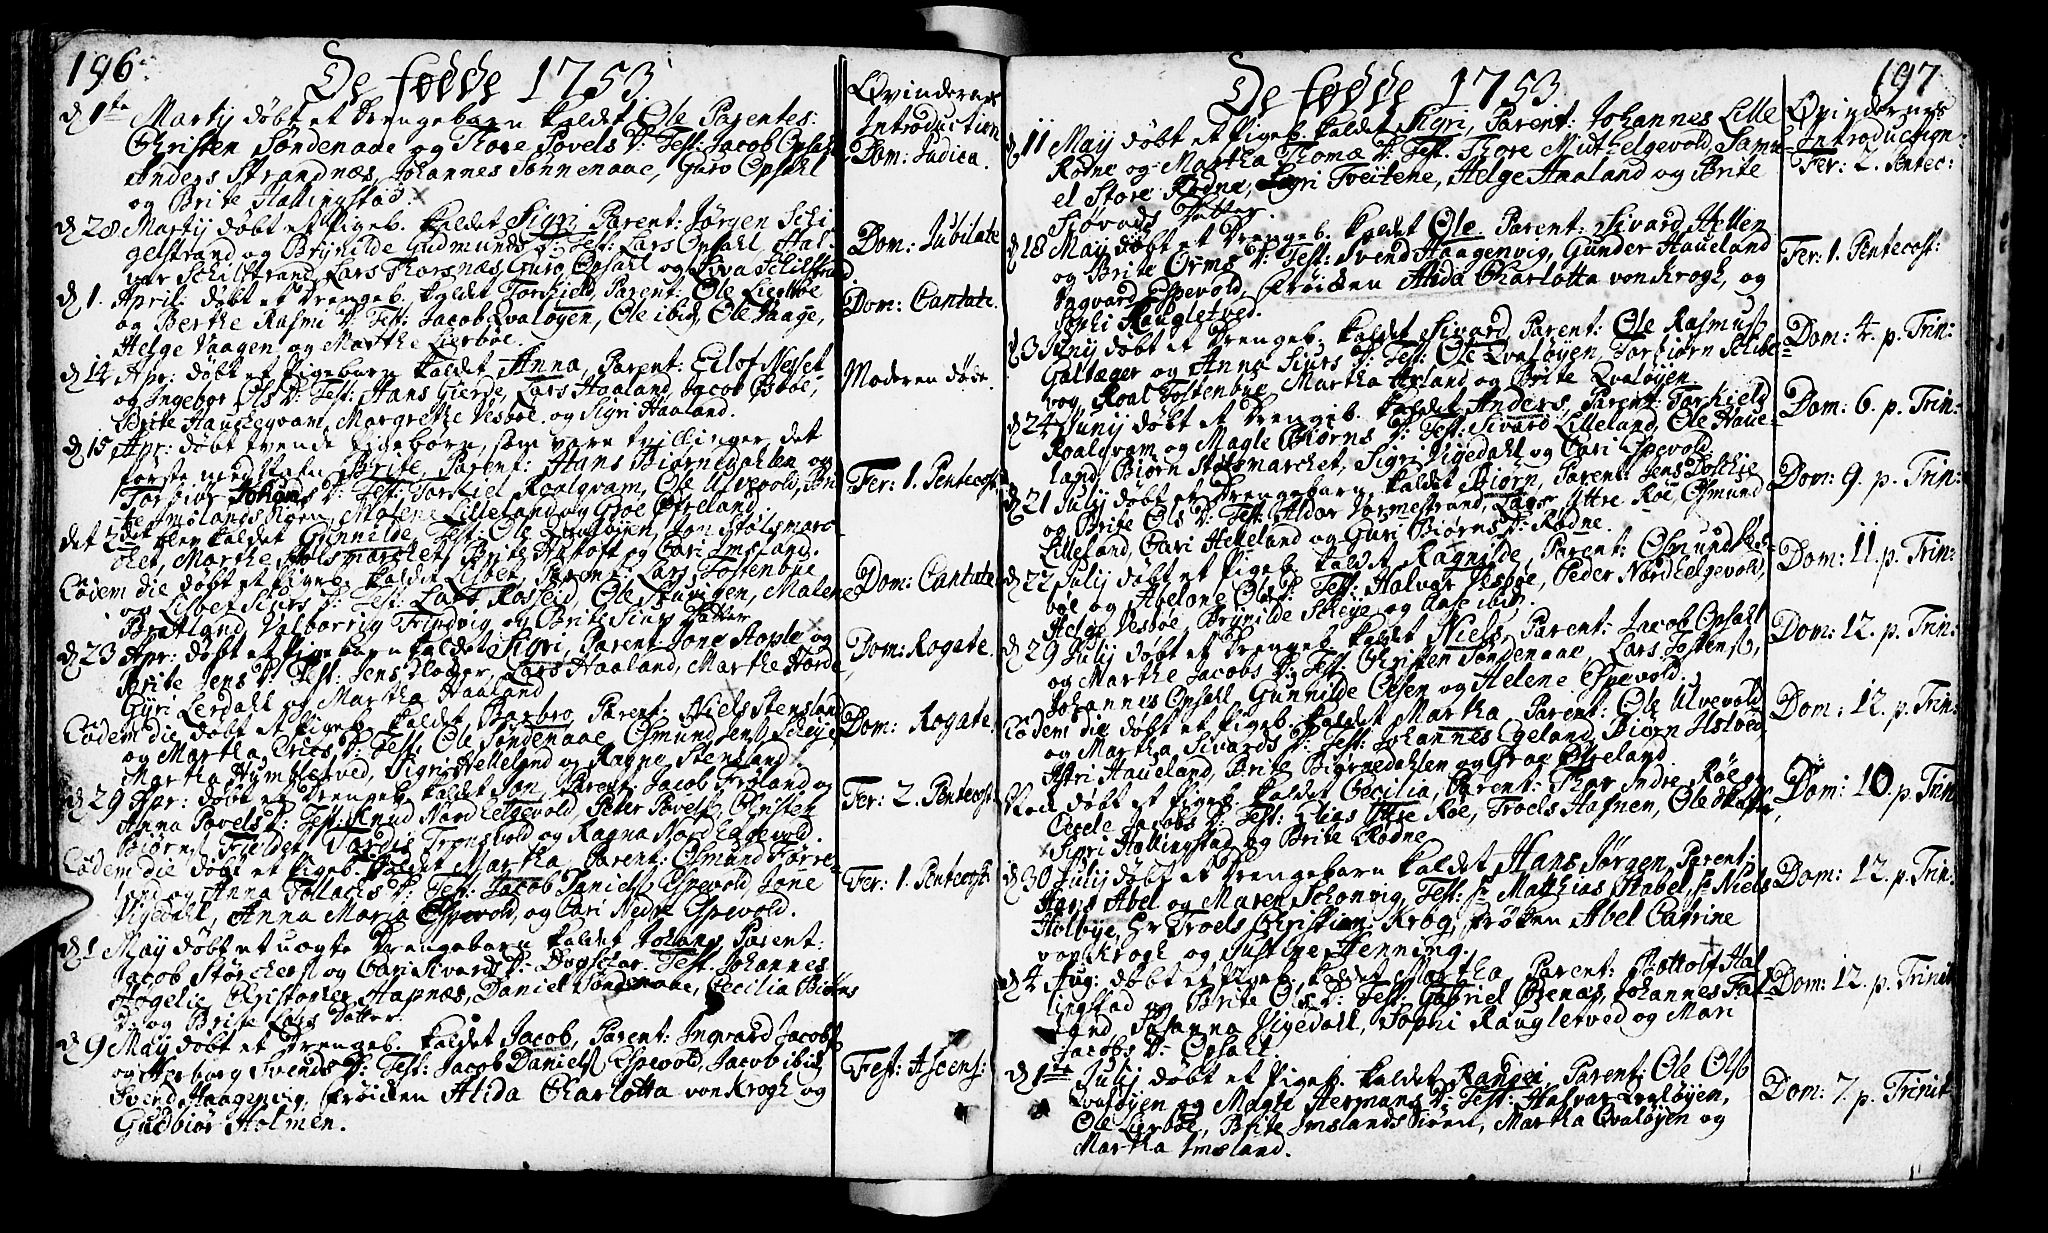 196.
De fødde 1753
Qvindernes
Introduction
d 1te Martij døbt et Drengebarn kaldet Ole Parentes:
Christen Søndenaae og Thore Povels D: Test: Jacob Opsahl
Dom: Judica.
Anders Strandnæs, Johannes Sønnenaae, Guro Opsahl
og Brite Hallingstad.
d 28 Martij døbt et Pigeb. kaldet Sigri, Parent: Jørgen Schi
Dom: Jubilate
gelstrand og Brynilde Gudmunds D: Test: Lars Opsahl, Hal-
var Schilstrand, Lars Thorsnæs, Guro Opsahl og Schilstrand
d 1. April: døbt et Drengeb. kaldet Torkield, Parent: Ole Lierbøe
Dom: Cantate.
og Berthe Rasmi D: Test: Jacob Qvaløyen, Ole ibid, Ole Vaage,
Helge Vaagen og Marthe Lierbøe.
d 14 Apr: døbt et Pigebarn kaldet Anna, Parent: Eilof Nesset
Moderen døde.
og Ingebor Ols D: Test: Hans Gierde, Lars Haaland, Jacob Østbøe,
Brite Hauskeqvam, Margrethe Vesbøe og Sigri Haaland.
d 15 Apr: døbt tvende Pigebørn, som vare tvillinger, det
første med Nafn Brite, Parent: Hans Biørnedahlen og
Fer: 1. Pentecost:
Johans D: Test: Torkiel Roalqvam, Ole Ulvevold,
Imslands Siøen, Malene Lilleland og Groe Øfreland.
det 2det blev kaldet Gunnilde, Test: Ole Qvaløyen, Jon Stølsmar
chet, Marthe Stølsmarchet, Brite og Cari Imsland.
Eodem die døbt et Pigeb. kaldet Lisbet, Parent: Lars Tostenbøe
Dom: Cantate
og Lisbet Siurs D: Test: Lars Rosseid, Ole Malene
Bratland, Valborrig Trindvig og Brite Siurs Datter
d 23 Apr: døbt et Pigebarn kaldet Sigri, Parent: Jone Hople og
Dom: Rogate.
Brite Jens D: Test: Jens Lars Haaland, Marthe
Gyri Lerdahl og Martha Haaland
Eodem die døbt et Pigeb. kaldet Barbro, Parent: Niels Stensland
Dom: Rogate.
og Martha Erics D: Test: Ole Søndenaae, Osmund Jens Scheye
Martha Humblerved, Sigri Helleland og Ragne Stensland.
d 29 Apr: døbt et Drengeb. kaldet Jon, Parent: Jacob Frøland og
Fer: 2. Pentecost:
Anna Povels D: Test: Knud Nordhelgevold, Peter Povels, Christen
Biørns Fieldet, Vardis Trønsvold og Ragna Nordhelgevold.
Eodem die døbt et Pigeb. kaldet Martha, Parent: Osmund Førre-
Fer: 1. Pentecost:
land og Anna Tollachs D: Test: Jacob Daniels Espevold, Jone
Vigedahl, Anna Maria Espevold, og Cari Nedre Espevold.
d 1 May døbt et uægte Drengebarn kaldet Johans, Parent:
Jacob Størchers og Cari Sivards D: Test. Johannes
Fogelie, Christopher Hapnæs, Daniel Søndenaae, Cecilia Biørns
D: og Brite Lars Datter.
d 9 May døbt et Drengeb. kaldet Jacob, Parent: Ingvard Jacobs
og Aasborg Svends D: Test: Jacob Daniels Espevold, Jacob ibid,
Fest: Ascens:
Svend Haagenvig, Frøiden Alida Charlotta von Krogh og
Gudbiør Holmen.

197
De fødde 1753
Qvindernes
Introduction:
d 11 May døbt et Pigeb. kaldet Sigri, Parent: Johannes Lille
Fer: 2. Pentec:
Rødne og Martha Thomæ D: Test. Thore Midthelgevold, Samu-
el Store Rødne, Sigri Tveitene, Helge Haaland og Brite
Siøvads Datter.
d 18 May døbt et Drengeb. kaldet Ole. Parent: Sivard Hetten
Fer: 1. Pentecost:
og Brite Orms D: Test: Svend Haagenvig, Gunder Haueland
Ingvard Espevold, Frøiden Alida Charlotta von Krogh, og
Sophi Raugletved.
d 3 Junij døbt et Drengeb. kaldet Sivard, Parent: Ole Rasmus
Dom: 4. p. Trin:
Galtæger og Anna Siurs D: Test: Ole Qvaløyen Torbiørn
og Roal Tostenbøe, Martha Høyland og Brite Qvaløyen.
d 24 Junij døbt et Drengeb. kaldet Anders, Parent: Torkield
Dom: 6. p. Trin:
Roalqvam og Magle Biørns D: Test: Sivard Lilleland, Ole Haue-
land, Biørn Stølsmarchet, Sigri Vigedahl og Cari Espevold.
d 21 Julij døbt et Drengebarn kaldet Biørn, Parent: Jens
Dom: 9. p. Trin:
og Brite Ols D: Test: Aldor Vormestrand, Lars Yttre Røe, Osmund
Lilleland, Cari Helleland og Guri Biørns D: Rødne.
d 22 Julij døbt et Pigeb. kaldet Ragnilde, Parent: Osmund Ves-
Dom: 11. p. Trin:
bøe og Abelone Ols D: Test: Halvar Vesbøe, Peder Nordhelgevold,
Helge Vesbøe, Brynilde Scheye og Aase ibid.
d 29 Julij døbt et Drengeb. kaldet Niels, Parent: Jacob Opsahl
Dom: 12. p. Trin:
og Marthe Jacobs D: Test: Christen Søndenaae, Lars Tostens,
Johannes Opsahl, Gunnilde Olsen og Helene Espevold.
Eodem die døbt et Pigeb. kaldet Martha, Parent: Ole Ulvevold
Dom: 12. p. Trin:
og Martha Sivards D: Test: Johannes Egeland, Biørn
Astri Haueland, Brite Biørnedahlen og Groe Øfreland.
døbt et Pigeb. kaldet Cecilia, Parent: Thor Indre Røe og
Dom: 10 p. Trin
Cicele Jacobs D: Test: Elias Yttre Røe, Troels Hafnen, Ole
Sigri Hallingstad og Brite Rødne.
d 30 Julij døbt et Drengebarn kaldet Hans Jørgen, Parent:
Dom: 12. p. Trin:
Hans Abel og Maren Schonvig, Test: Sr Matthias Stabel, Sr Niels
Holbye, Hr Troels Christian Krog, Frøken Abel Catrine
von Krogh og Justine Henning.
d 4 Aug: døbt et Pigeb. kaldet Martha, Parent: Bottolf Hal
Dom: 12. p. Trinit
lingstad og Brite Ols D: Test: Gabriel Ørenæs, Johannes
land, Susanna Vigedahl, Sophi Rauglerved og Mari
Jacobs D: Opsahl.
d 1te Julij døbt et Pigeb. kaldet Rangei, Parent: Ole Ols
Dom: 7. p. Trinit
Qvaløyen og Magla Hermans D: Test: Halvar Qvaløyen,
Ole Lierbøe, Brite Imslands Siøen, Martha Qvaløyen og
Martha Imsland.